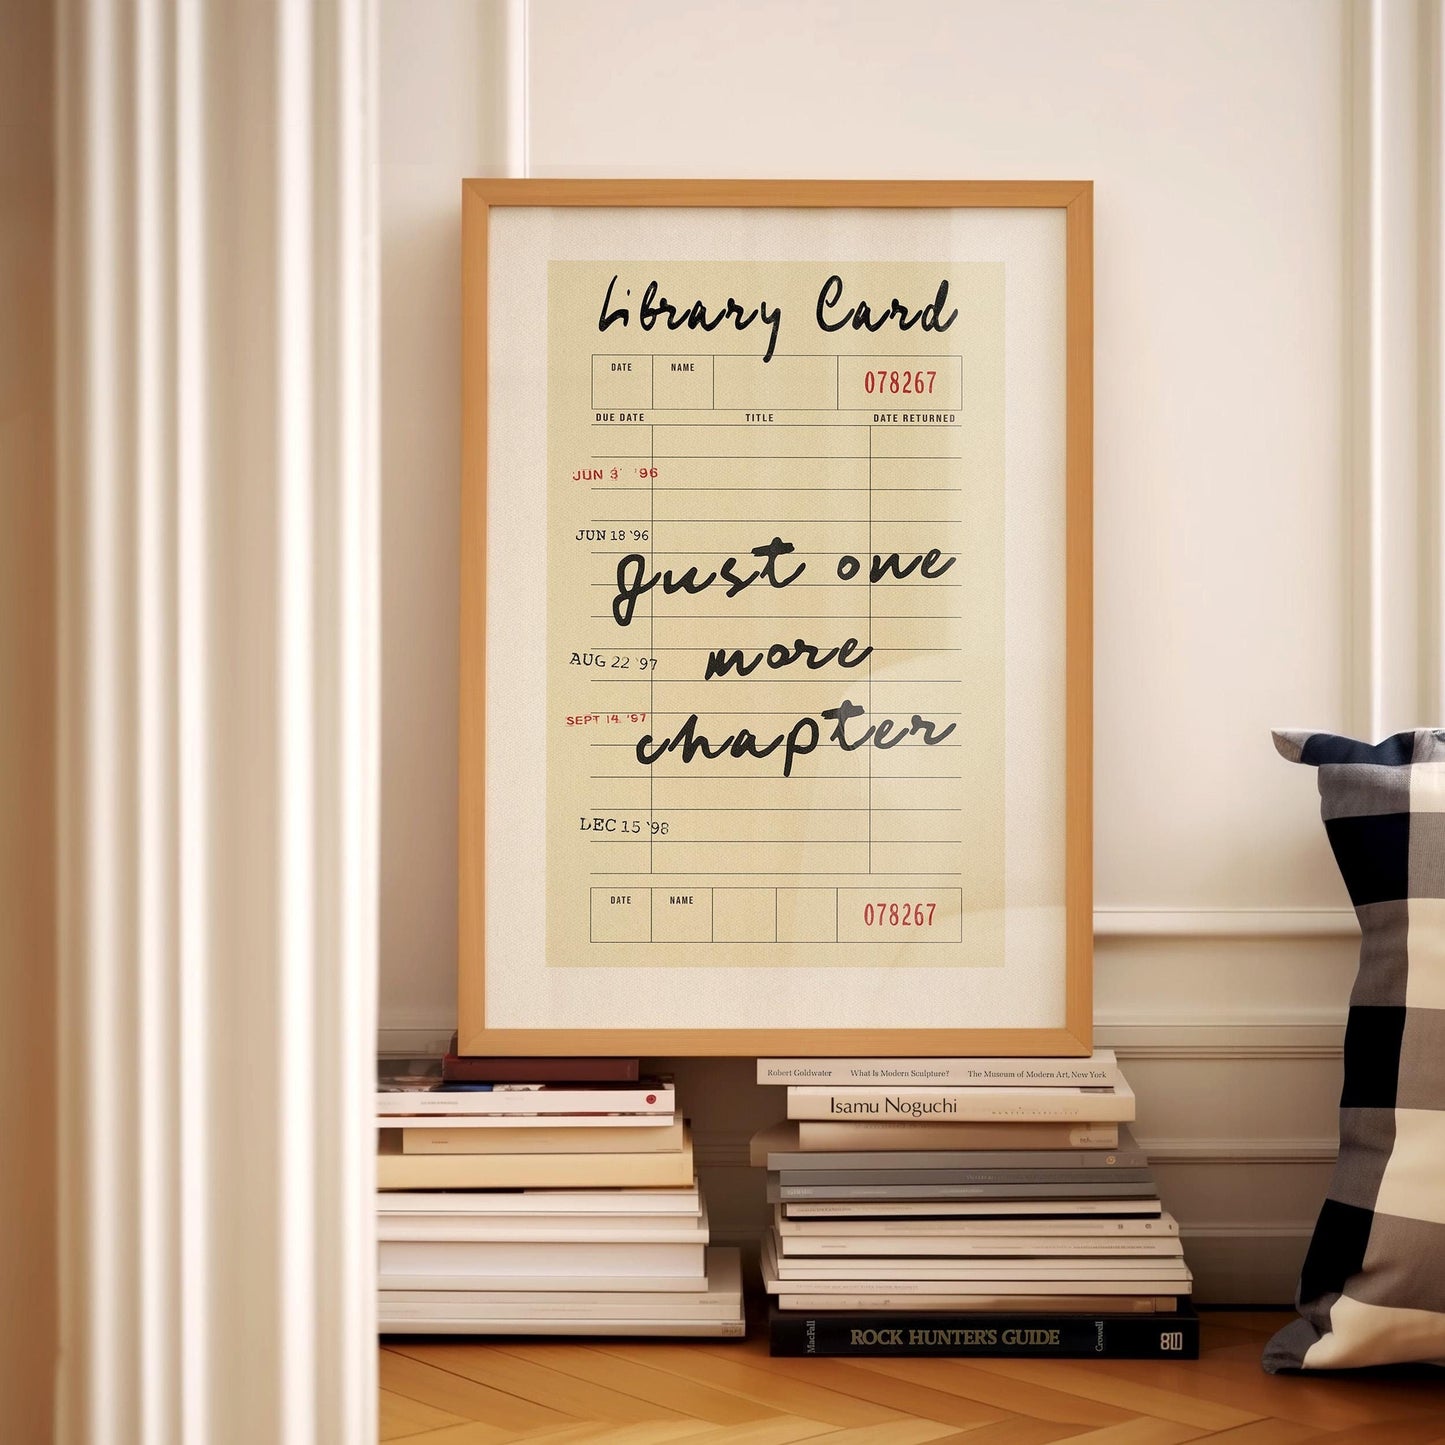 Library Card
DATE NAME 078267
DUE DATE TITLE DATE RETURNED
JUN 3 '96
JUN 18 '96
Just one
more
AUG 22 '97
SEPT 14 '97
chapter
DEC 15 '98
DATE NAME 078267
Robert Goldwater What Is Modern Sculpture? The Museum of Modern Art, New York
Isamu Noguchi
MacFall ROCK HUNTER'S GUIDE Crowell